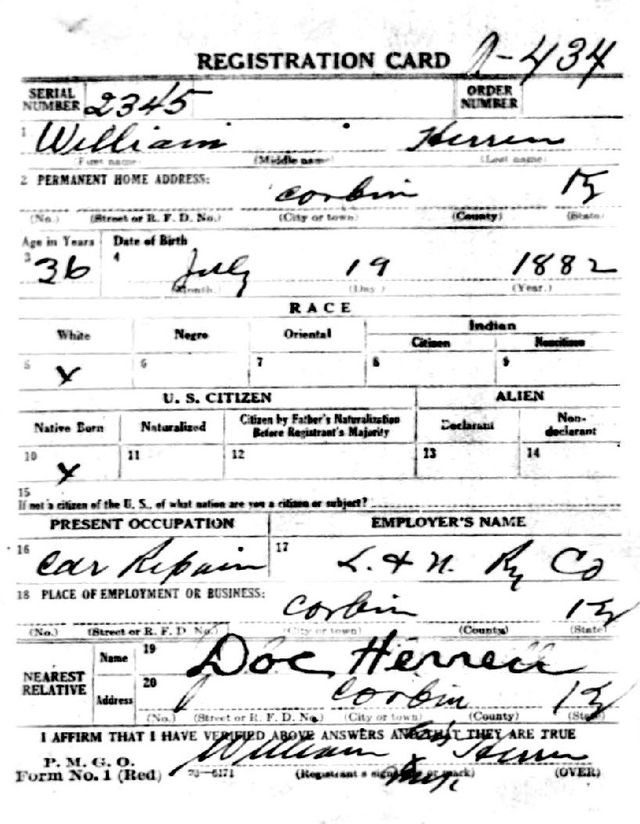 REGISTRATION CARD 1-434
SERIAL NUMBER 2345 ORDER NUMBER
1 William Herren
(First name) (Middle name) (Last name)
2 PERMANENT HOME ADDRESS: Corbin Ky
(No.) (Street or R. F. D. No.) (City or town) (County) (State)
Age in Years Date of Birth
3 36 4 July 19 1882
(Month.) (Day.) (Year.)
RACE
White Negro Oriental Indian
Citizen Noncitizen
5 X 6 7 8 9
U. S. CITIZEN ALIEN
Native Born Naturalized Citizen by Father's Naturalization Before Registrant's Majority Declarant Non-declarant
10 X 11 12 13 14
15
If not a citizen of the U. S., of what nation are you a citizen or subject?
PRESENT OCCUPATION EMPLOYER'S NAME
16 Car Repair 17 L. & N. Ry Co
18 PLACE OF EMPLOYMENT OR BUSINESS:
Corbin Ky
(No.) (Street or R. F. D. No.) (City or town) (County) (State)
NEAREST RELATIVE Name 19 Doc Herren
Address 20 Corbin Ky
(No.) (Street or R. F. D. No.) (City or town) (County) (State)
I AFFIRM THAT I HAVE VERIFIED ABOVE ANSWERS AND THAT THEY ARE TRUE
P. M. G. O.
Form No. 1 (Red) William Herren
(Registrant's signature or mark) (OVER)